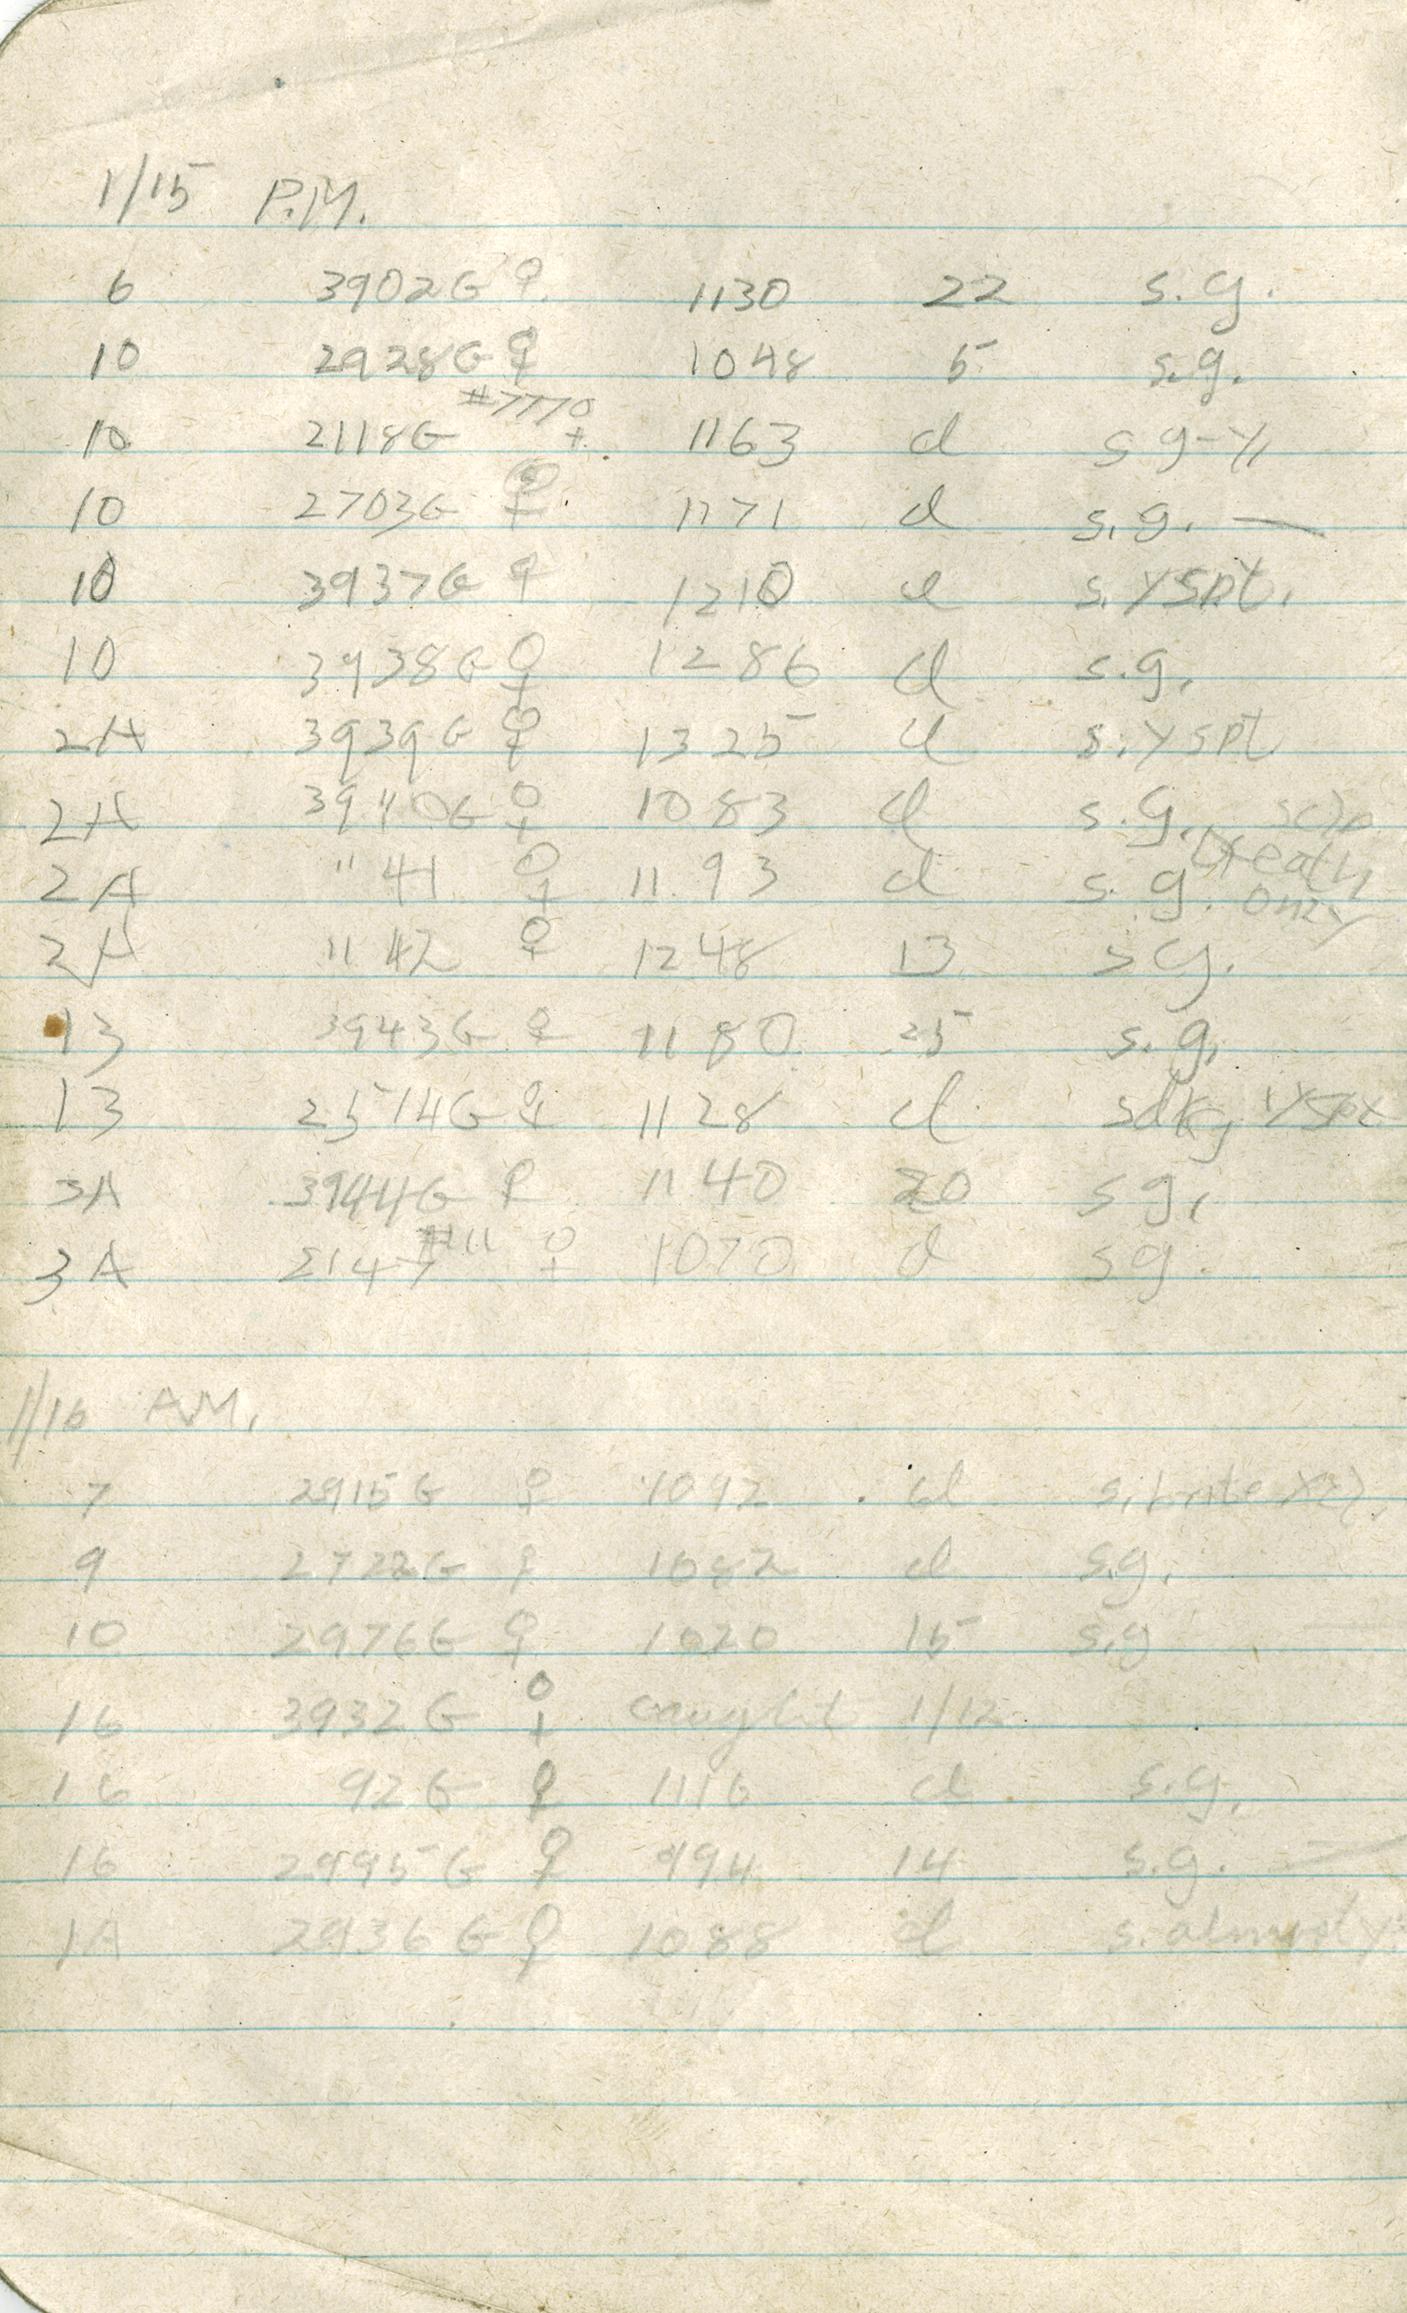 1/15 P.M.
6 3902G ♀ 1130 22 s.g.
10 2928G ♀ 1048 5 s.g.
#777
10 2118G ♀ 1163 d s g-y
10 2703G ♀ 1171 d s.g. —
10 3937G ♀ 1210 d s. y spt.
10 3938G ♀ 1286 d s.g.
2A 3939G ♀ 1325 d s. y spt
2A 3940G ♀ 1083 d s.g.
2A " 41 ♀ 1193 d s.g. breath only
2A " 42 ♀ 1248 13 s g.
13 3943G ♀ 1180 25 s.g.
13 2514G ♀ 1128 d sdkg y spt
3A 3944G ♀ 1140 20 s g.
3A 2147 ♀ 1070 d s g.
1/16 A.M.
7 2915G ♀ 1092 d s. brite
9 2722G ♀ 1082 d s.g.
10 2976G ♀ 1020 15 s.g —
16 3932G ♀ caught 1/12
16 92G ♀ 1116 d s.g.
16 2995G ♀ 994 14 s.g. —
1A 2936G ♀ 1088 d s. almost y